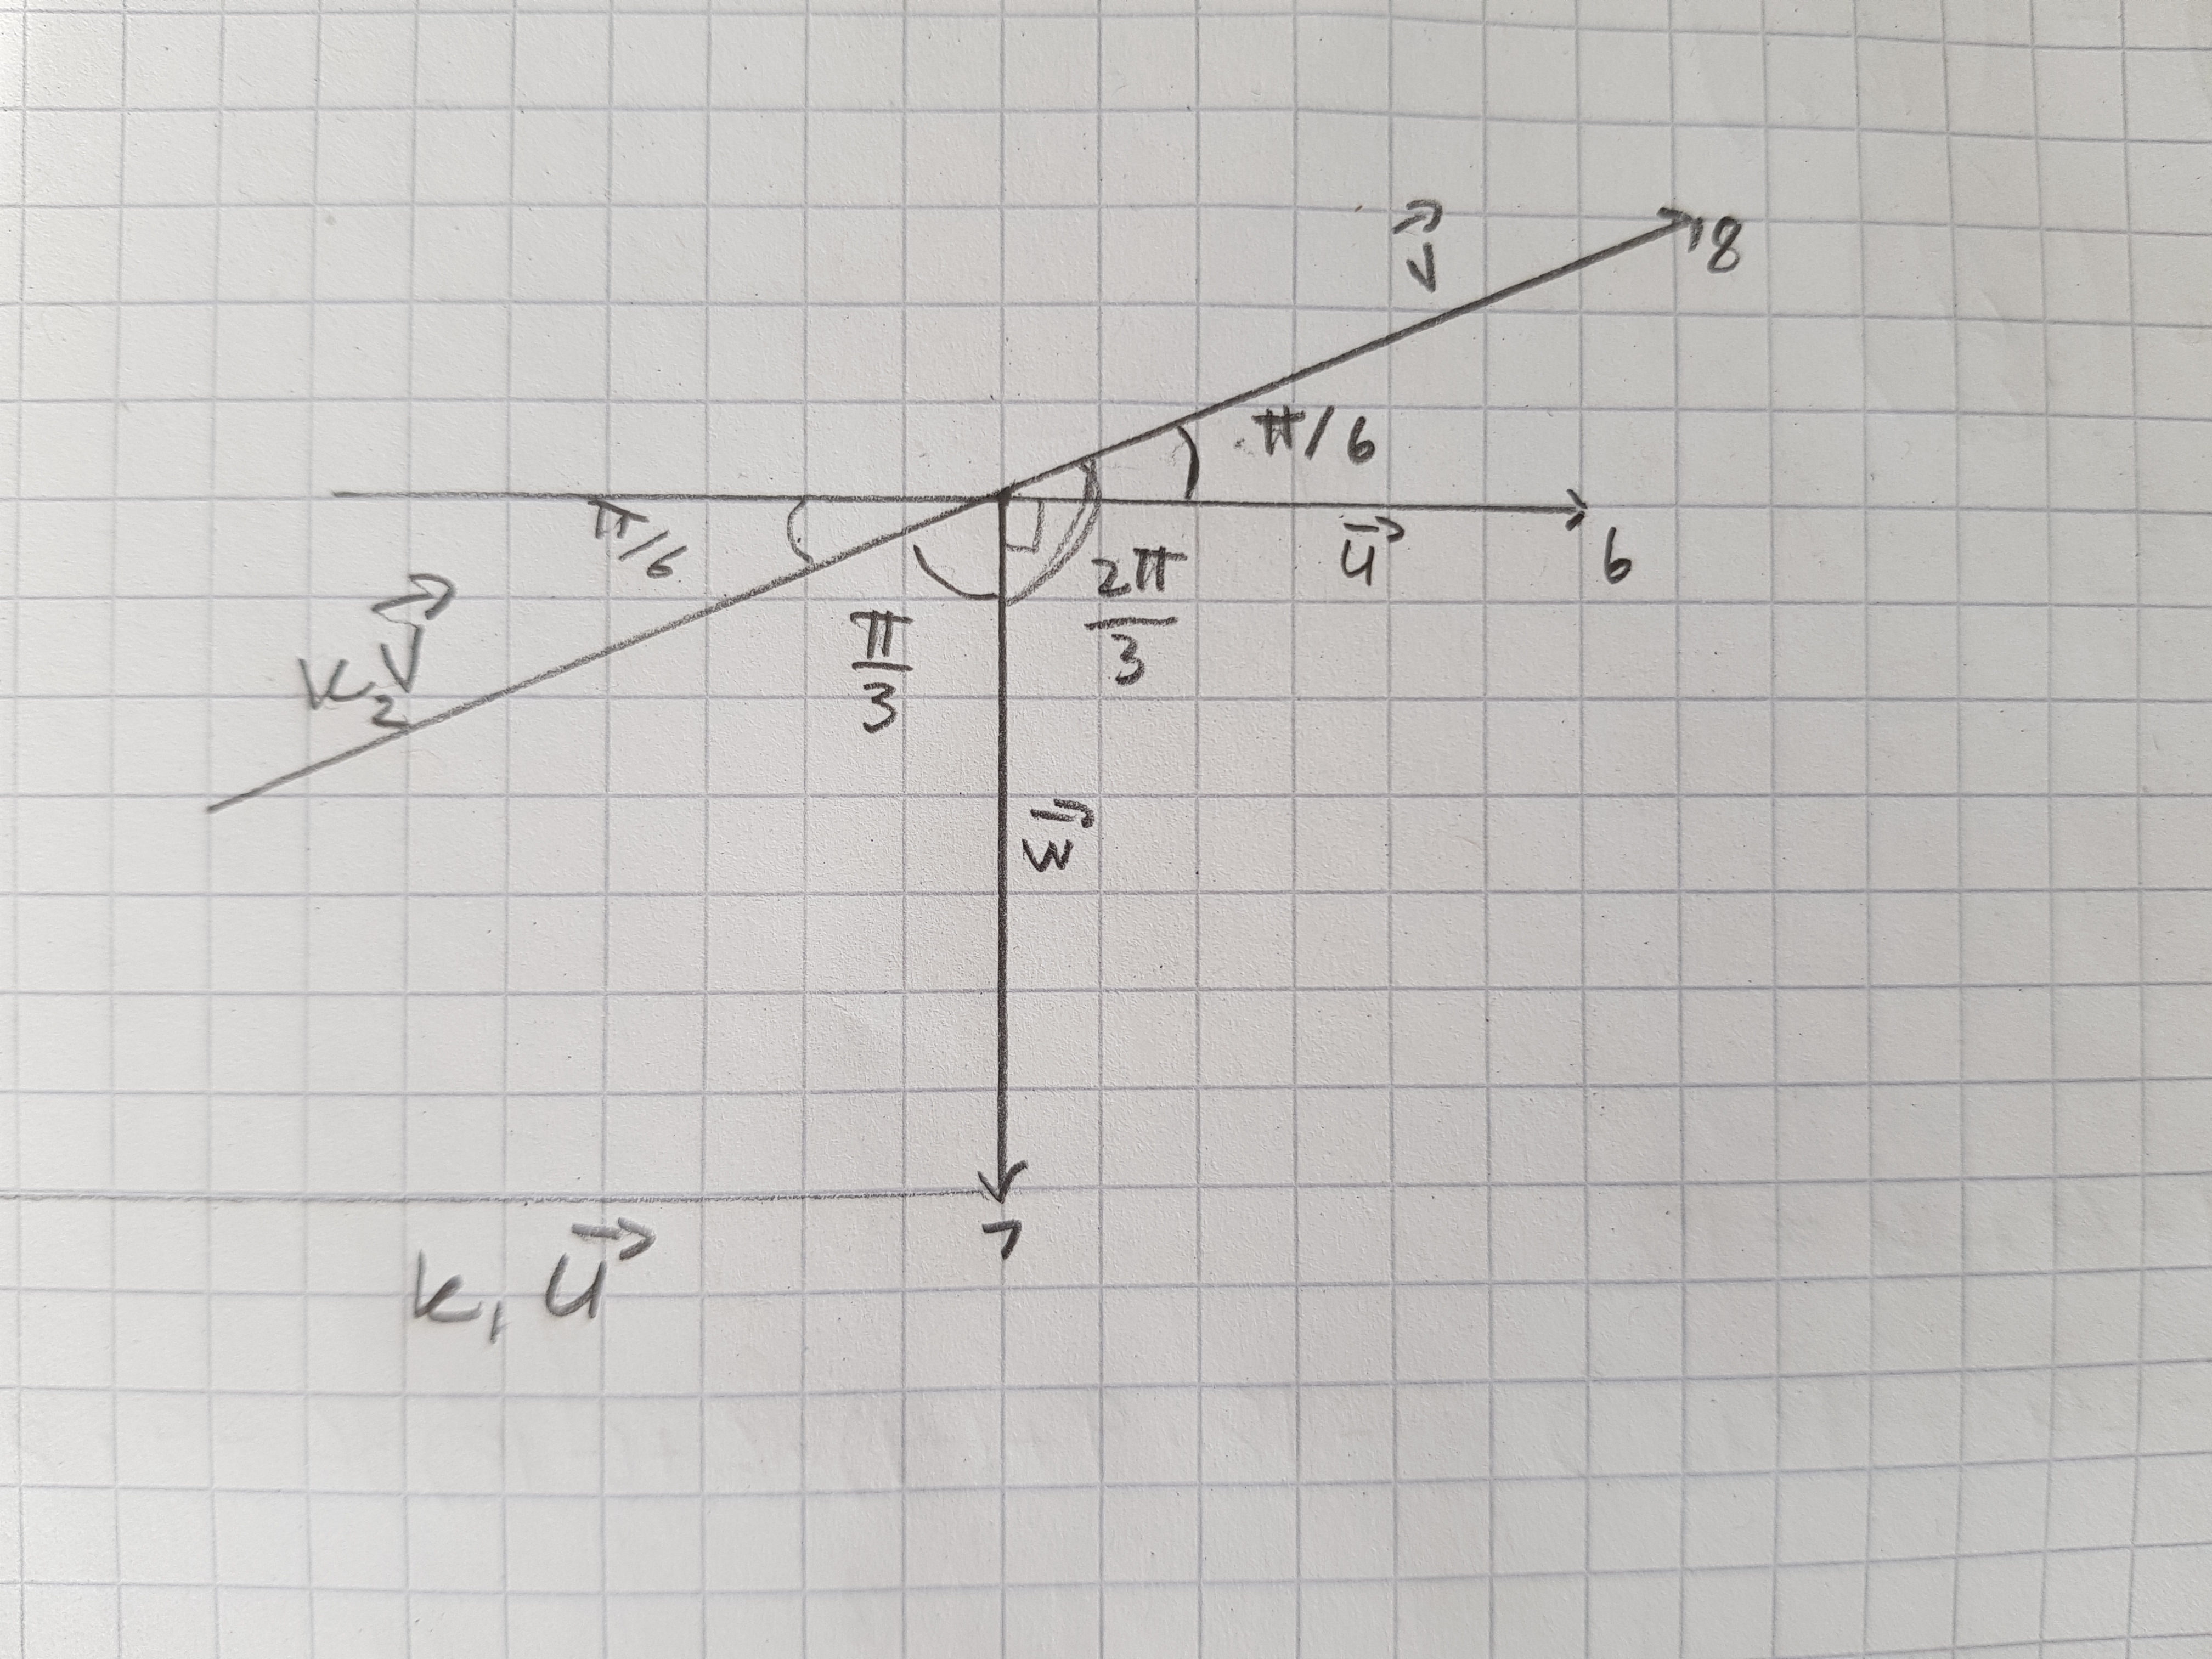 v⃗
8
π/6
π/6
u⃗
6
2π/3
π/3
k₂v⃗
w⃗
7
k₁u⃗